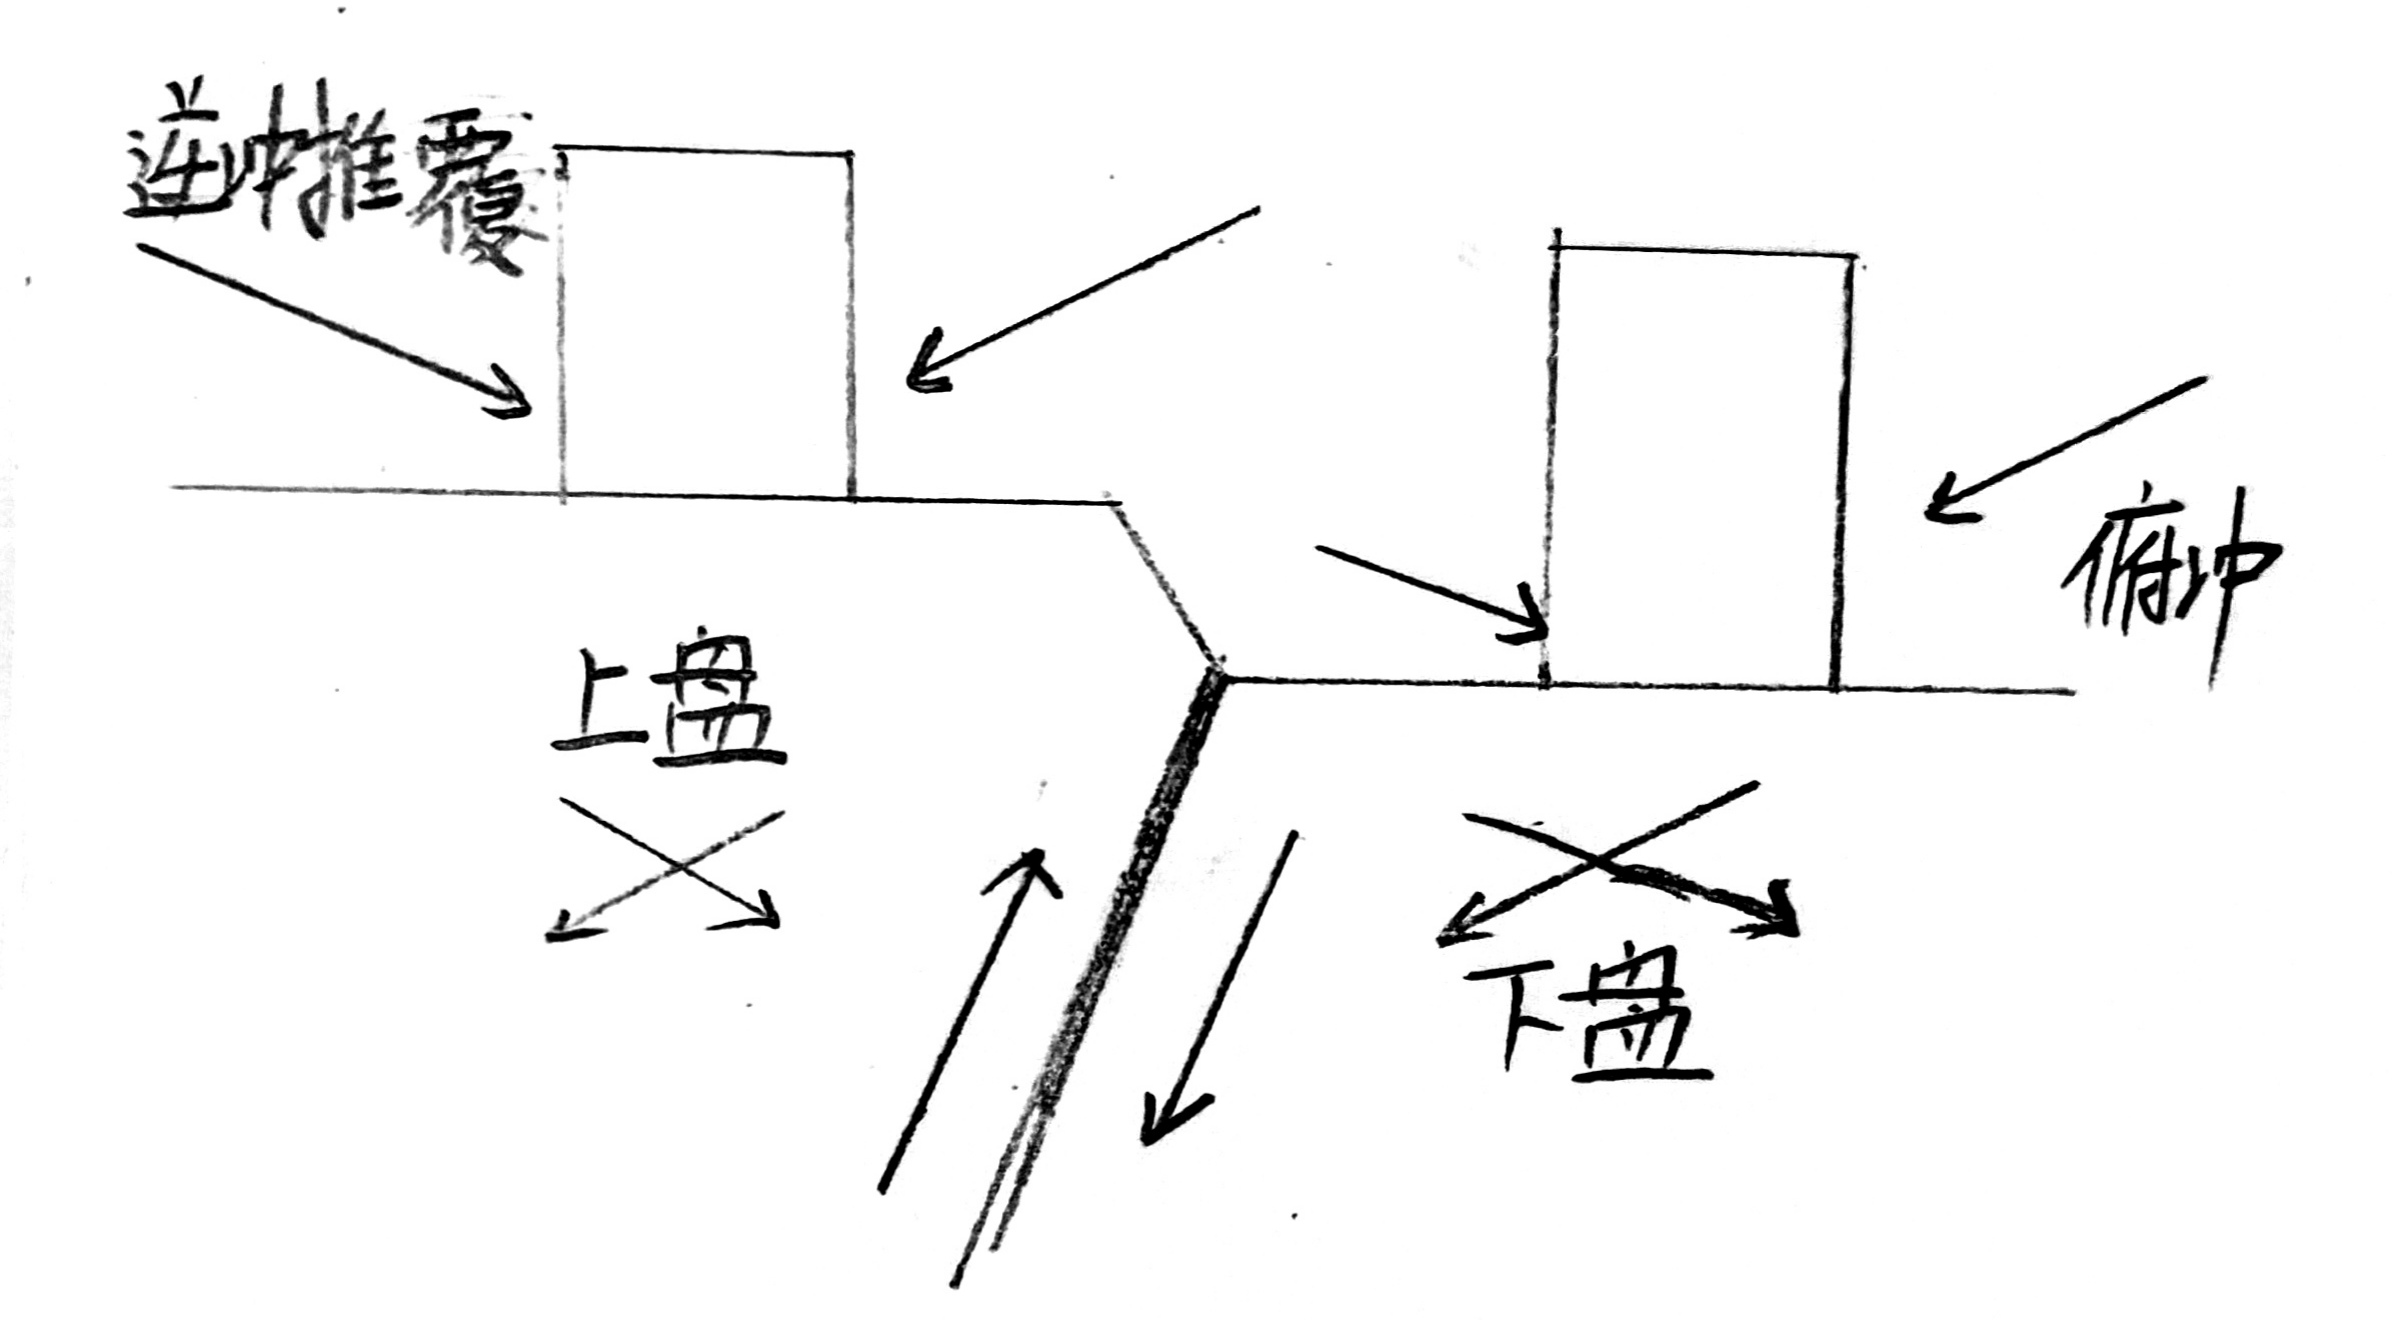 逆冲推覆
俯冲
上盘
下盘